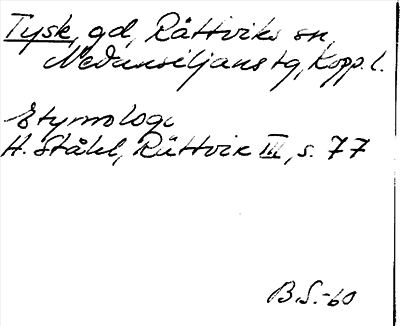 Tysk, gd, Rättviks sn,
Nedansiljans tg, Kopp. l.
Etymologi
H. Ståhl, Rättvik III, s. 77
B.S.-60